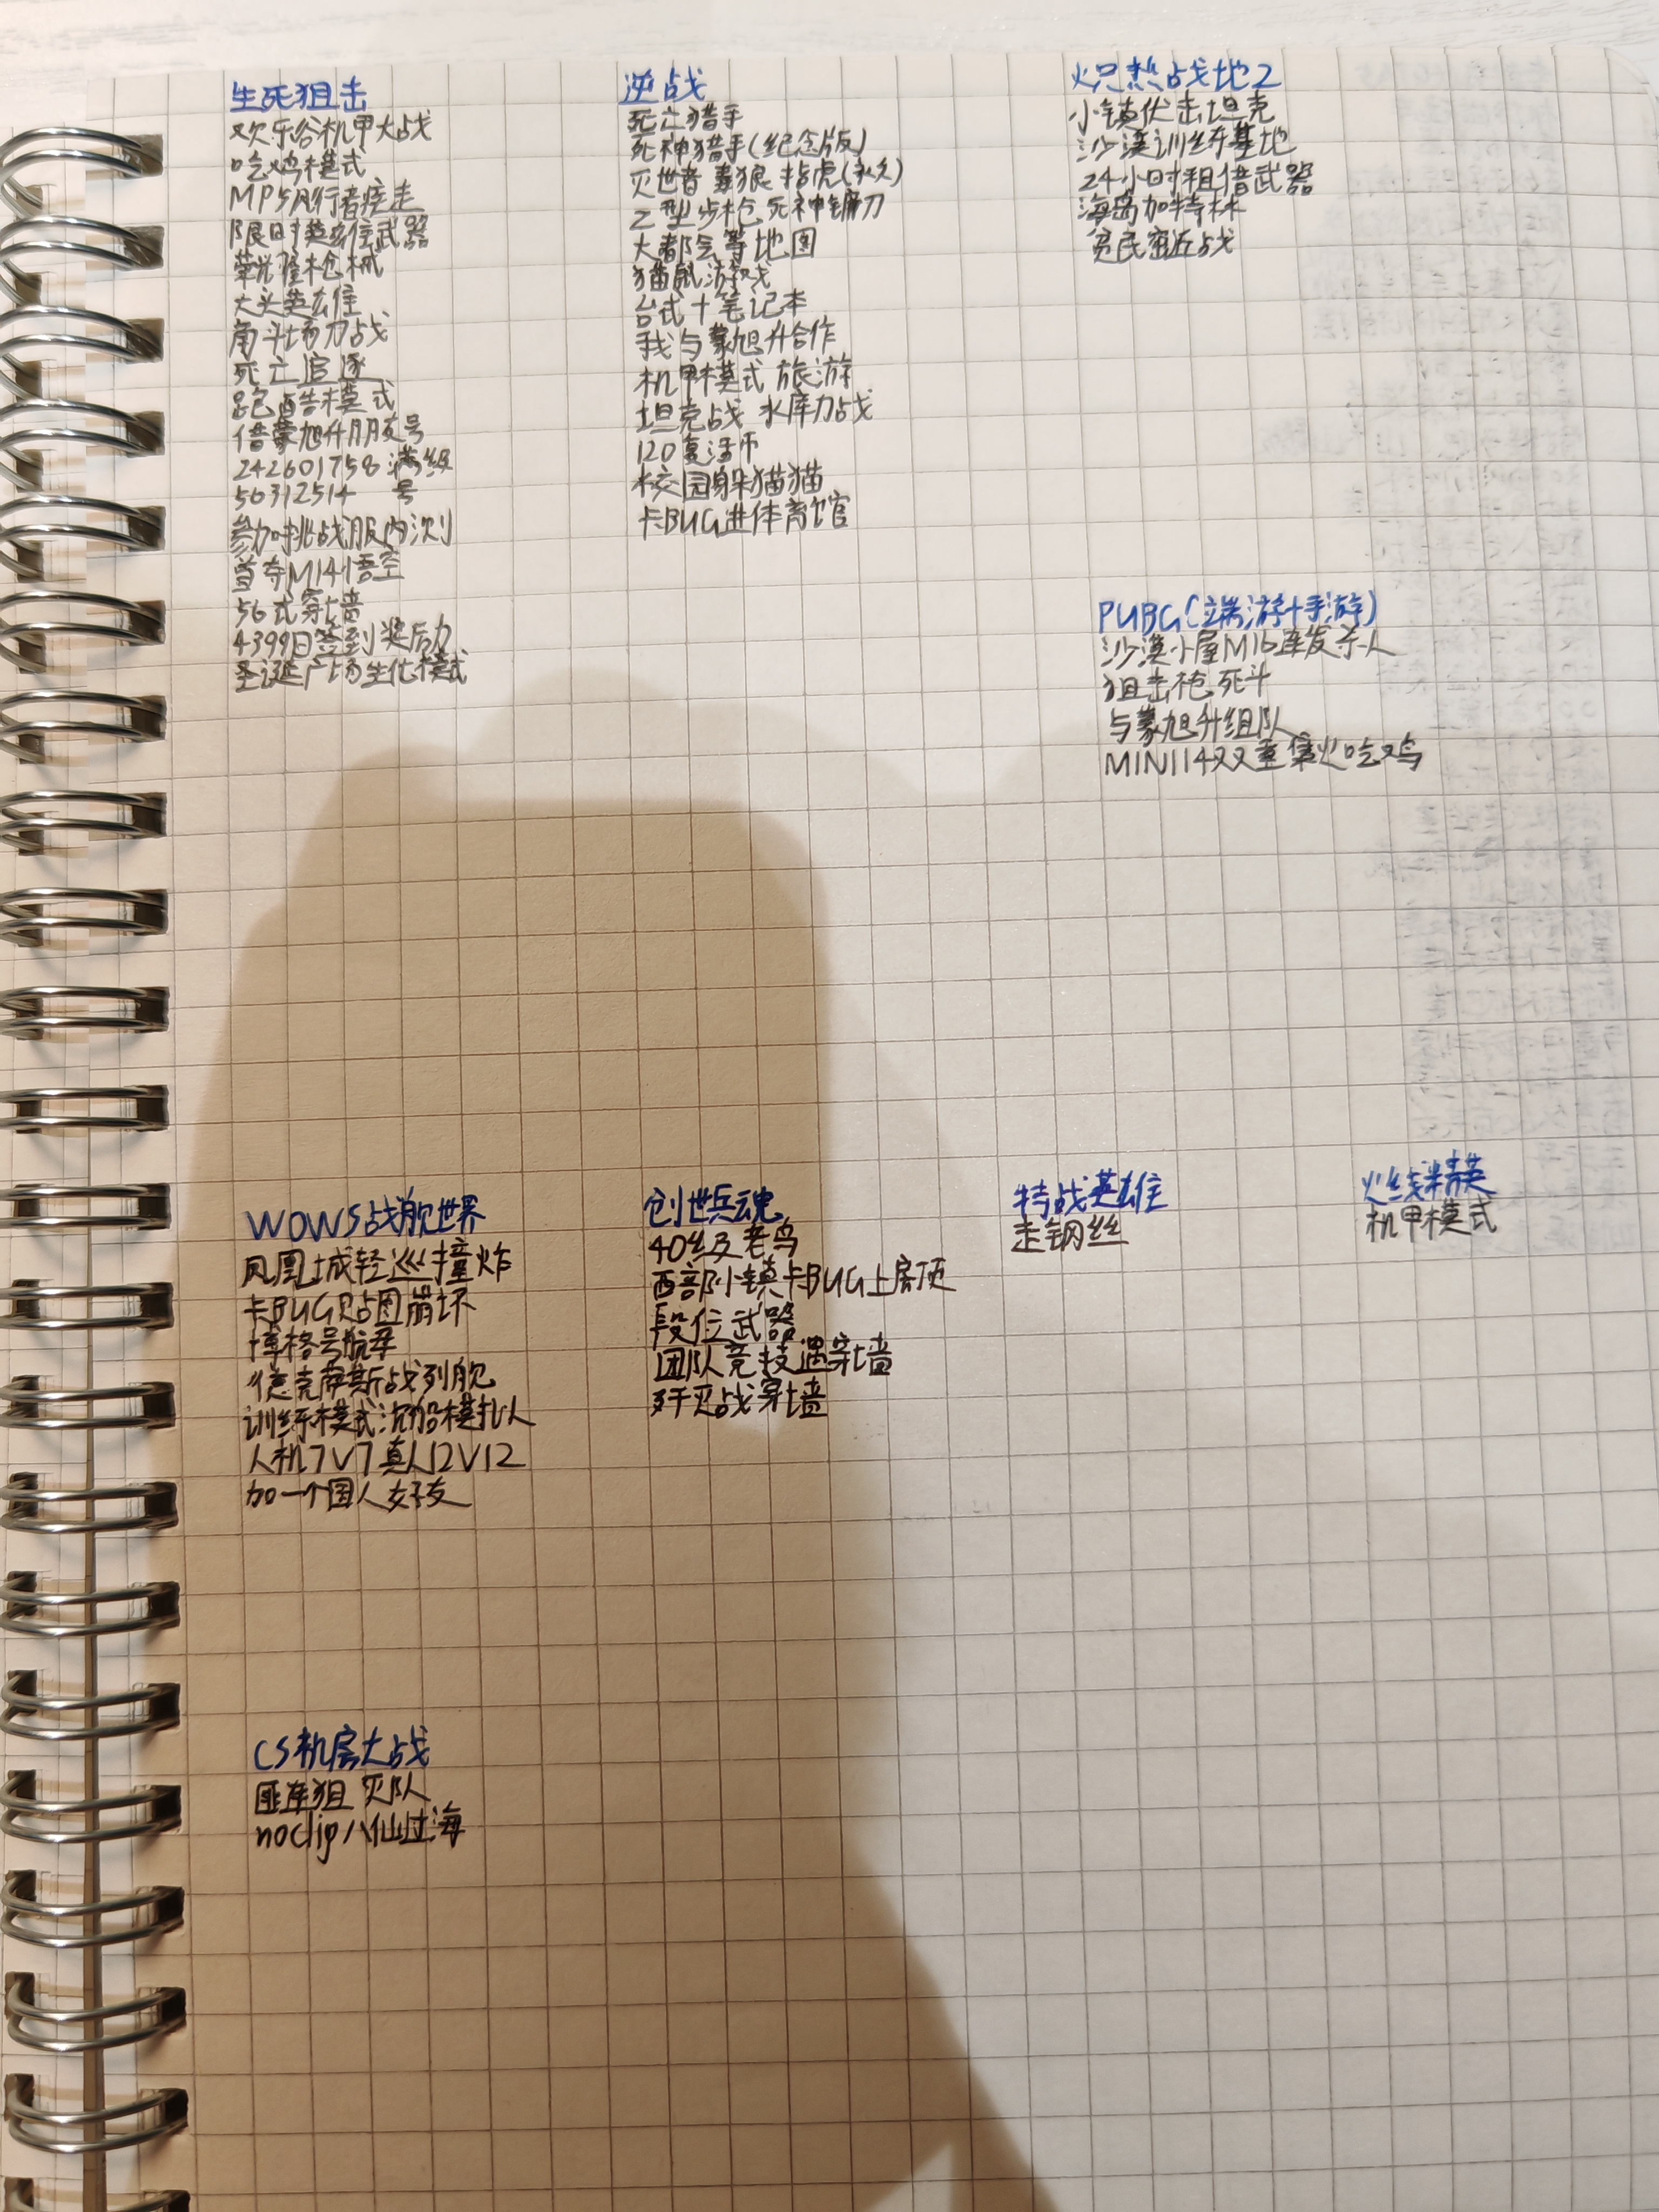 生死狙击
欢乐谷机甲大战
吃鸡模式
MP5风行者疾走
限时英雄武器
荣光 枪械
大头英雄
角斗场刀战
死亡追逐
跑酷模式
借蒙旭升朋友号
242601758 满级
56312514 号
参加挑战服内测
首夺M14悟空
56式穿墙
4399日签到奖励
圣诞广场生化模式
逆战
死亡猎手
死神猎手(纪念版)
灭世者 毒狼 指虎(永久)
Z型步枪 死神镰刀
大都会等地图
猫鼠游戏
台式+笔记本
我与蒙旭升合作
机甲模式 旅游
坦克战 水库刀战
120复活币
校园躲猫猫
卡BUG进体育馆
炽热战地2
小镇伏击坦克
沙漠训练基地
24小时租借武器
海岛加特林
贫民窟近战
PUBG(端游+手游)
沙漠小屋M16连发杀人
狙击枪死斗
与蒙旭升组队
MINI14双重集火吃鸡
WOWS战舰世界
凤凰城轻巡撞炸
卡BUG贴图崩坏
博格号航母
德克萨斯战列舰
训练模式沉船模拟人
人机7V7真人12V12
加一个国人好友
创世兵魂
40级老鸟
西部小镇卡BUG上房顶
段位武器
团队竞技遇穿墙
歼灭战穿墙
特战英雄
走钢丝
火线精英
机甲模式
CS机房大战
匪连狙 灭队
noclip八仙过海